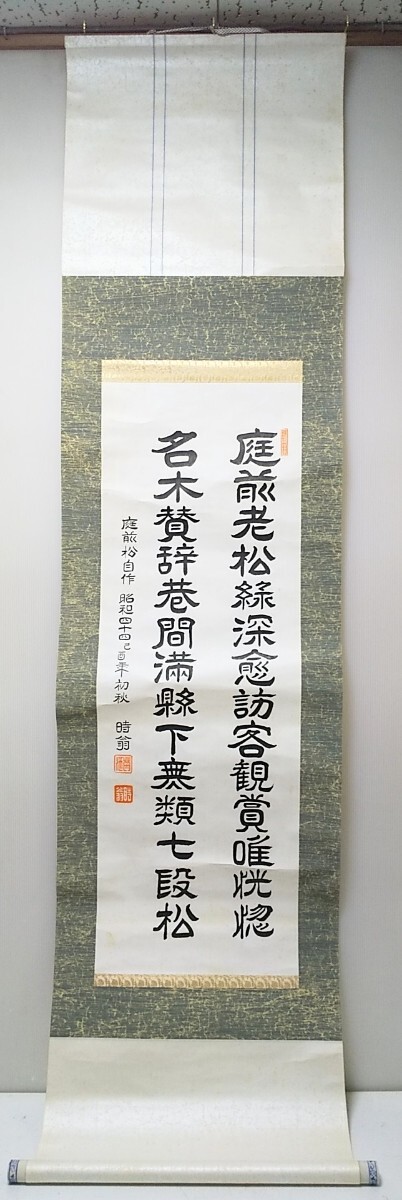 庭前老松緑深愈訪客観賞唯恍惚
名木賛辞巷間満縣下無類七段松
庭前松自作 昭和四十四己酉年初秋 時翁